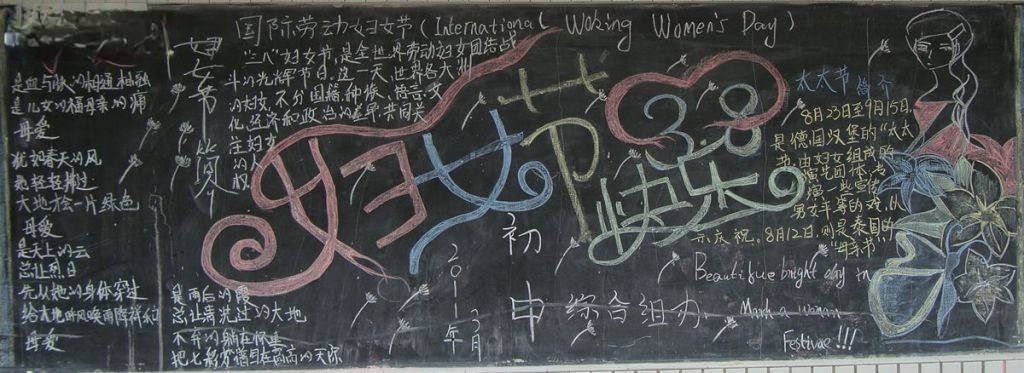 国际劳动妇女节(International Woking Women's Day)
"三八"妇女节,是全世界劳动妇女团结战
斗的光辉节日。这一天,世界各大洲
的妇女,不分国籍、种族、语言、文
化、经济和政治的差异,共同关
注妇女
的人
权
妇女节简介
是血与脉的相通相融
是儿女的福母亲的痛
母爱
犹如春天的风
轻轻拂过
大地绘一片绿色
母爱
是天上的云
总让烈日
先从她的身体穿过
母爱
是雨后的霞
总让清洗过的大地
妇女节快乐
3.8
太太节简介
8月23日至9月15日
是德国汉堡的"太太
节"。由妇女组成的
演出团体,表
演一些宣传
男女平等的戏,以
示庆祝。8月12日,则是泰国的
"母亲节"
2011年3月
初
申 综合组办
Beautiful bright day in
March a woman
Festival!!!